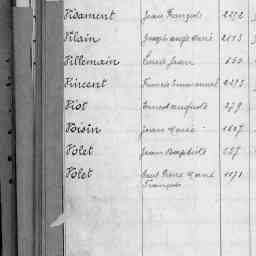 Vidament Jean François 2272
Vilain Joseph Ange René 2153
Villemain Louis Jean 153
Vincent Francis Emmanuel 2295
Viot Ernest Auguste 279
Voisin Jean Marie 1607
Volet Jean Baptiste 257
Volet Paul Pierre Marie 1171
François